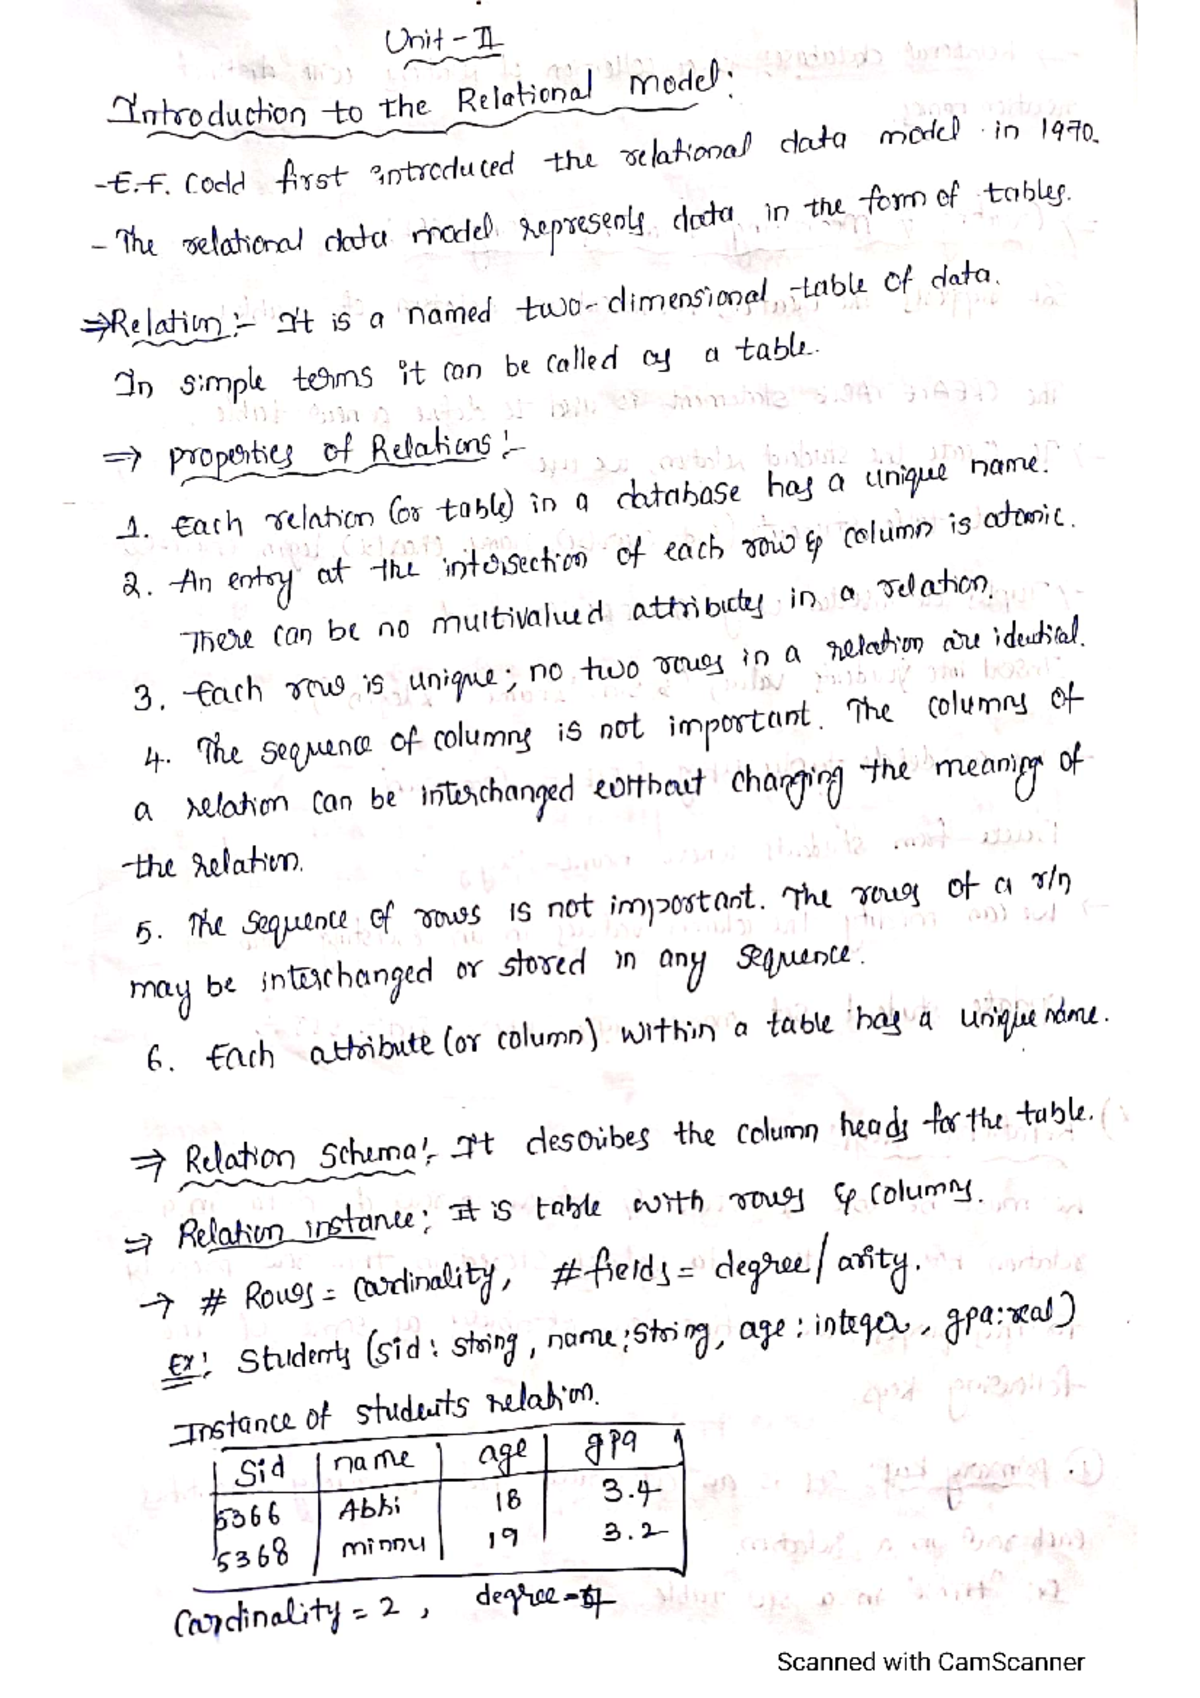 Unit - II
Introduction to the Relational model:
- E.F. Codd first introduced the relational data model in 1970.
- The relational data model represents data in the form of tables.
⇒ Relation :- It is a named two-dimensional table of data.
In simple terms it can be called as a table.
⇒ properties of Relations :-
1. Each relation (or table) in a database has a unique name.
2. An entry at the intersection of each row & column is atomic.
There can be no multivalued attributes in a relation.
3. Each row is unique; no two rows in a relation are identical.
4. The sequence of columns is not important. The columns of
a relation can be interchanged without changing the meaning of
the relation.
5. The sequence of rows is not important. The rows of a r/n
may be interchanged or stored in any sequence.
6. Each attribute (or column) within a table has a unique name.
⇒ Relation Schema :- It describes the column heads for the table.
⇒ Relation instance: It is table with rows & columns.
→ # Rows = cardinality, # fields = degree / arity.
Ex: Students (sid : string, name : string, age : integer, gpa : real)
Instance of students relation.
Sid name age gpa
5366 Abhi 18 3.4
5368 minnu 19 3.2
Cardinality = 2 , degree = 4
Scanned with CamScanner